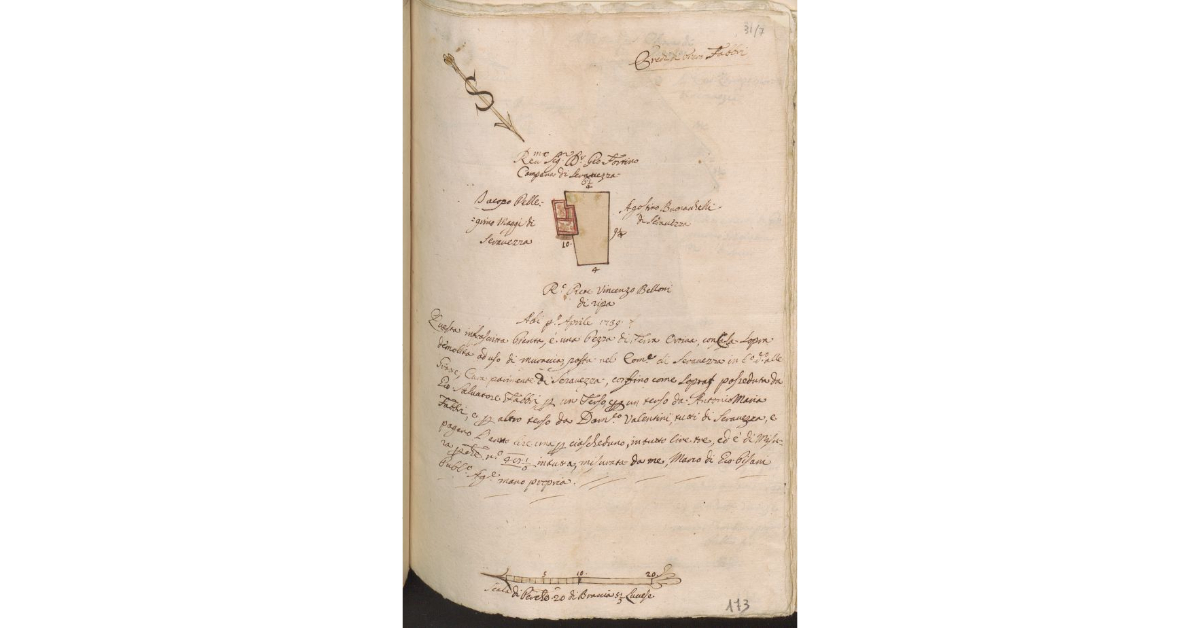 31/7
Eredi di Piero Fabbri
S
Rev.me Sig.r D.r Gio Fortino
Campana di Seravezza
4
Jacopo Pelle=
=grino Maggi di
Seravezza
Agostino Buonarelli
di Seravezza
10
9¼
4
R.e Prete Vincenzo Belloni
di ripa
Adi p.o Aprile 1759
Questa infrascritta Pianta, è una Pezza di Terra Ortiva, con Casa sopra
demolita ad uso di muraccia, posta nel Com.e di Seravezza in l.o d.o alle
Piove, Cura parimente di Seravezza, confino come sopra, posseduta da
Gio Salvatore Fabbri p un Terzo, p un terzo da Antonio Maria
Fabbri, e p altro terzo da Dom.co Valentini, tutti di Seravezza, e
pagano l'anno lire una p ciascheduno, in tutto lire tre, ed è di Misu=
ra n.o in tutto, misurata da me, Marco di Gio Pisani
Pubb.o Ag.e mano propria.
5 10 20
Scala di Pertiche 20 di Braccia 5½ Lucese
113